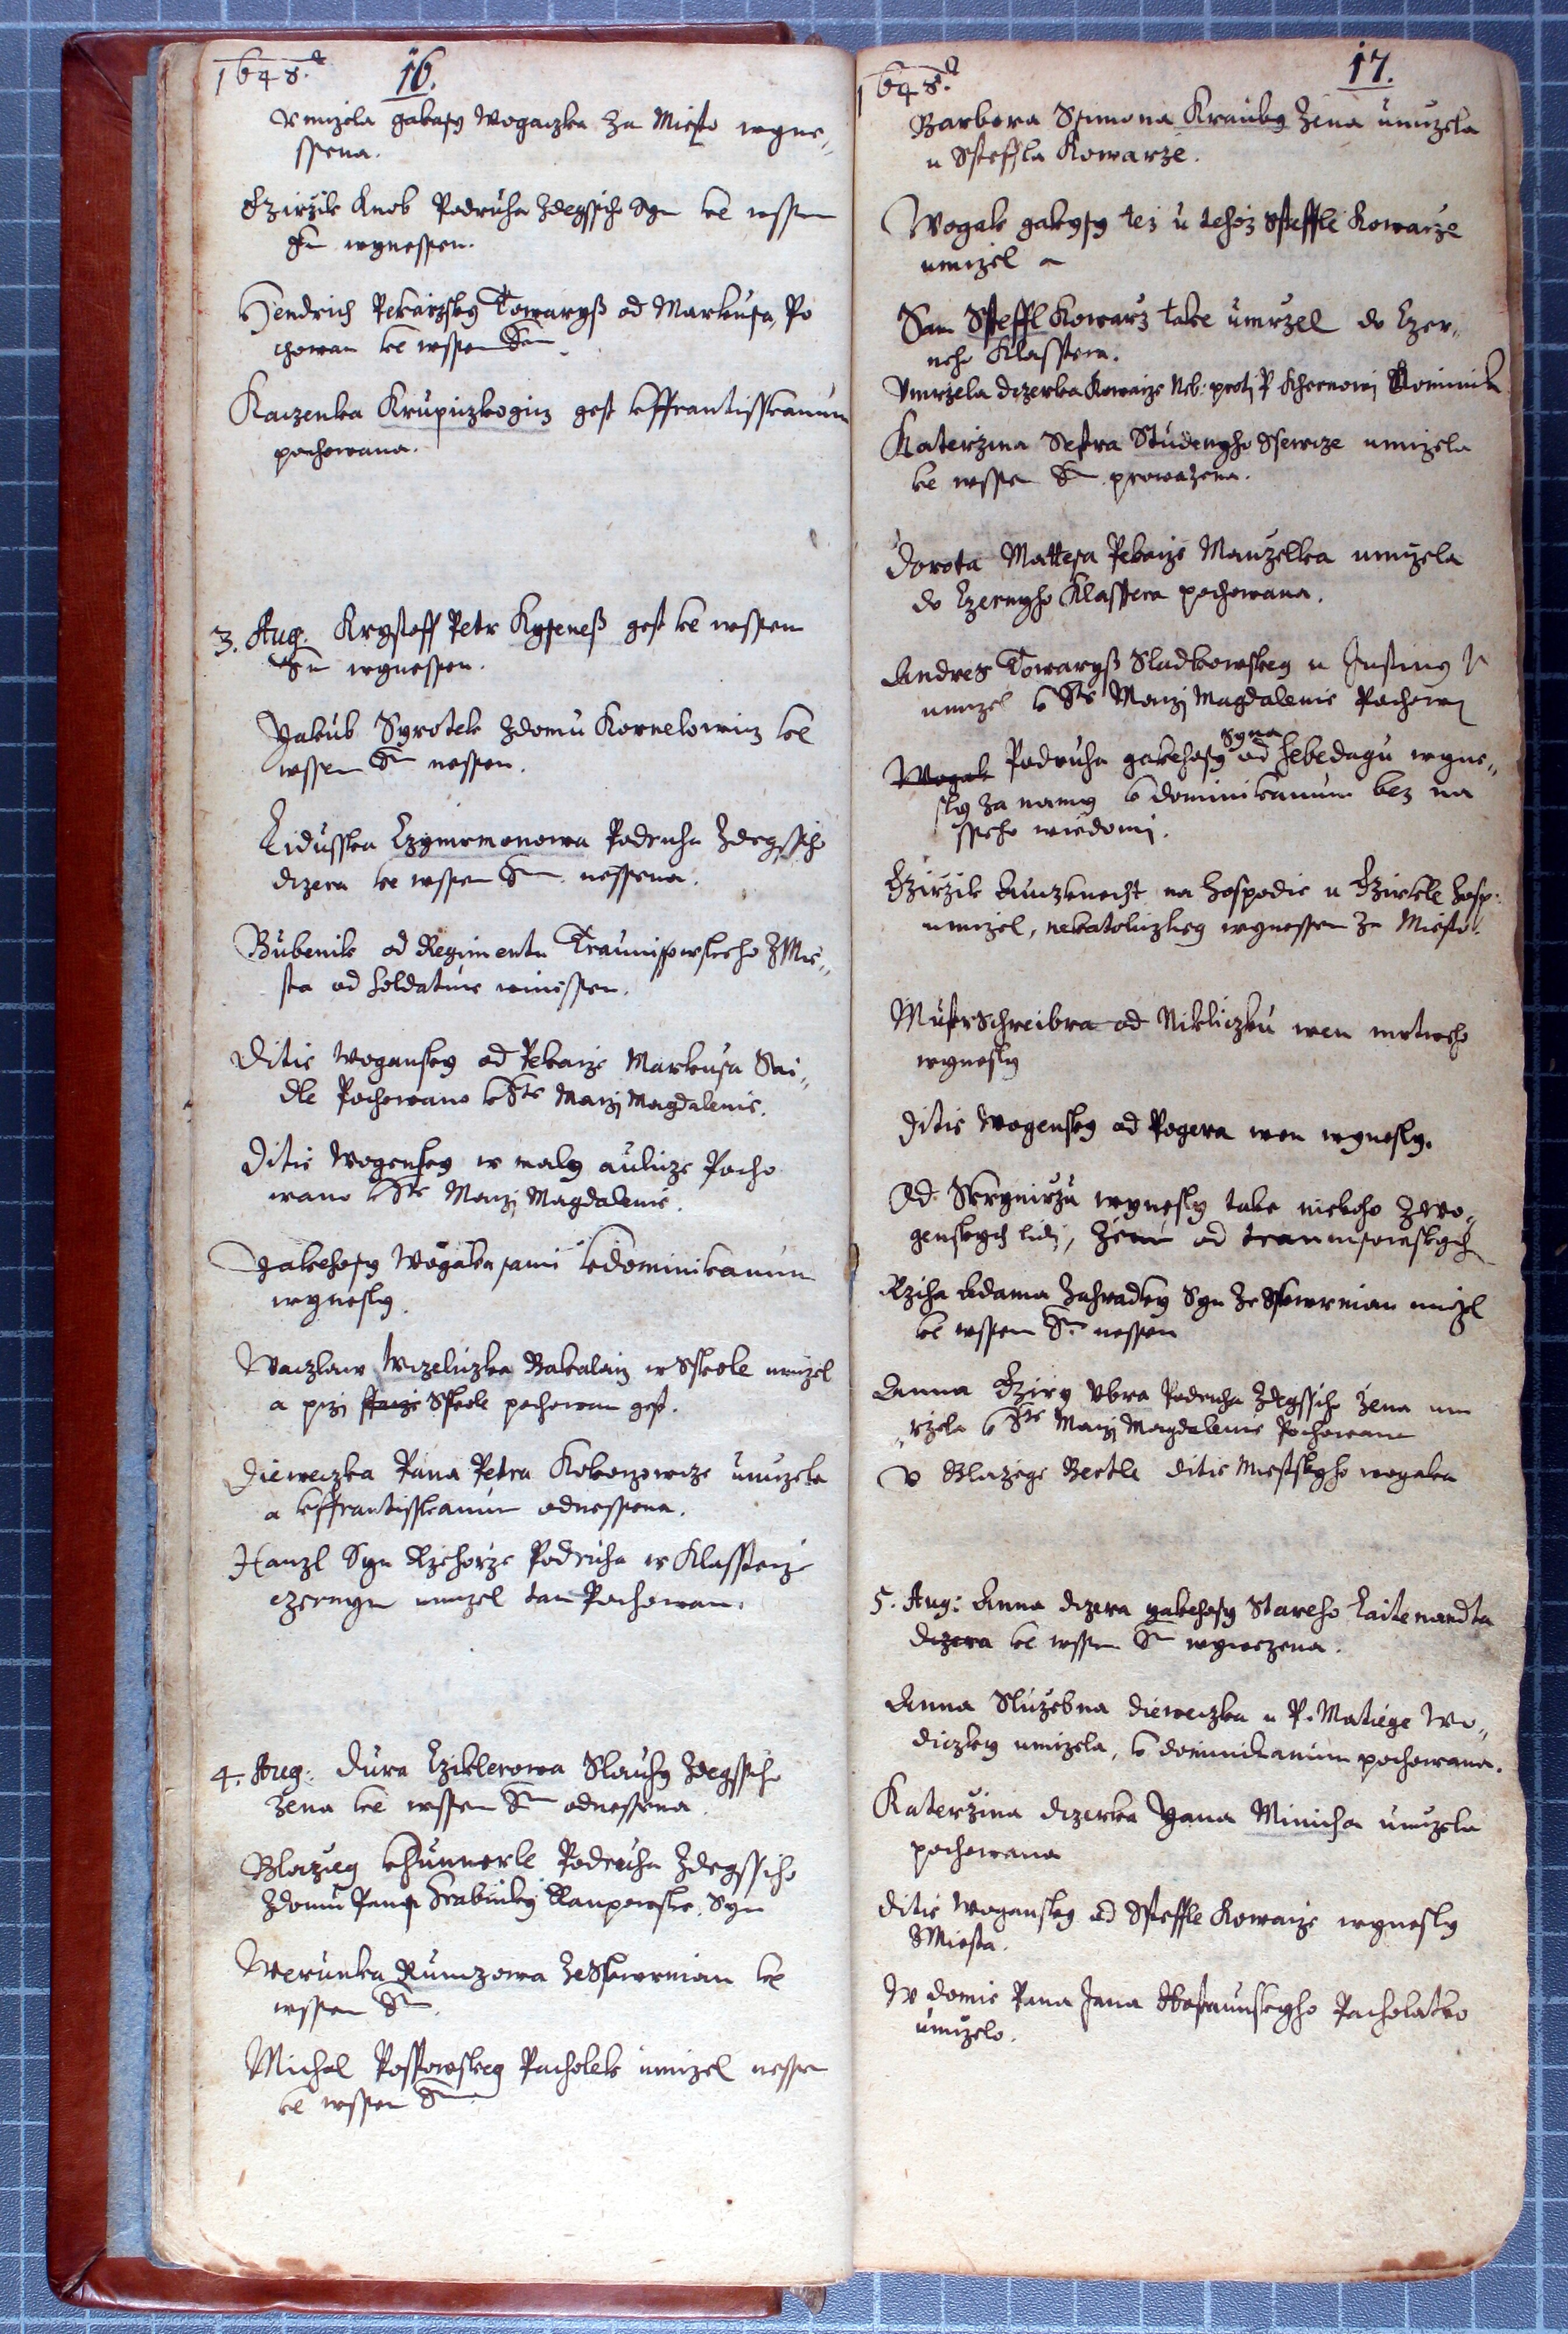 1648.
16.
Umrzela gakasy Wogaczka za Miesto wyne-
ssena.
Gzirzik Knob Podruha zdegssiho Syn ke wssem
Sm wynessen.
Hendrich Pekarzsky Towaryß od Markusa, Po
chowan ke wssem Sm
Kaczenka Krupiczkogicz gest k ffrantisskanum
pochowana.
3. Aug. Krysstoff Petr Kyseneß gest ke wssem
Sm wynessen.
Yakub Syrotek zdomu Kornelowicz ke
wssem Sm nessen.
Lidusska Czymrmonowa Podruha zdegssiho
dczera ke wssem Sm nessena.
Bubenik od Regimentu Traunisowskeho z Mie-
sta od Soldatuw winessen.
Ditie Wogansky od Pekarze Markusa Sai-
dle Pochowano k Ste Marzj Magdalenie.
Ditie Wogensky w maly auliczc Pocho
wano k Ste Marzj Magdalenie.
Gakehosy Wogaka sami k dominikanum
wynesly.
Waczlaw Wrzeliczka Bakalarz w Sskole umrzel
a przj Sskole pochowan gest.
Dieweczka Pana Petra Kokorzowcze umrzela
a k ffrantisskanum odnessena.
Hanzl Syn Rzehorze Podruha w Klassterze
czernym umrzel tam Pochowan.
4. Aug: Dura Cziklerowa Slauhy zdegssiho
žena ke wssem Sm odnessena.
Blazieg Khunnerle Podruha zdegssiho
zdomu Pana Hrabinky Raupowske. Syn
Werunka Rumczowa ze Skwrnian ke
wssem Sm.
Michal Possowsky Pacholek umrzel nessen
ke wssem Sm.
1648.
17.
Barbora Ssimona Krauby žena umrzela
u Ssteffla Kowarze.
Wogak gakysy tez u tehoz Ssteffle Kowarze
umrzel a
Sam Ssteffl Kowarz take umrzel do Czer-
neho Klasstera.
Umrzela dczerka Kowarze Neb: proti P Dominik
Katerzina Sestra Studenyho Ssewcze umrzela
ke wssem Sm prowazena.
Dorota Mattesa Pekarze Manzelka umrzela
do Czernyho Klasstera pochowana.
Andres Towaryß Sladkowsky u Justiny P
umrzel k Ste Marzj Magdalenie Pochow
Wogak Podruha gakehosy syna od Hebedagu wyne-
sly za namy k dominikanum bez na
sseho wiedomj.
Gzirzik Kunzknecht na Hospodie u Gzirkle Hosp:
umrzel, nekatoliczky wynessen za Miesto.
Musterschreibra od Nikliczku wen mrtweho
wynesly
Ditie Wogensky od Pogera wen wynesly.
Od Skrynirzu wynesly take niekoho z Wo-
genskych lidj, ženu od traunisowskych
Rziha Adama Zahradky Syn ze Skwrnian umrzel
ke wssem Sm nessen
Anna Gziry Ubra Podruha zdegssiho žena um
rzela k Ste Marzj Magdalenie Pochowana
U Blazege Bertle ditie Miestskyho wogaka
5. Aug: Anna dczera gakehosy Stareho Laitenandta
dczera ke wssem Sm wywezena.
Anna Sluzebna dieweczka u P. Matiege Wo-
diczky umrzela, k dominikanum pochowana.
Katerzina dczerka Yana Minicha umrzela
pochowana
Ditie Wogansky od Ssteffle Kowarze wynesly
z Miesta.
W domie Pana Jana Hostaunskyho Pacholatko
umrzelo.